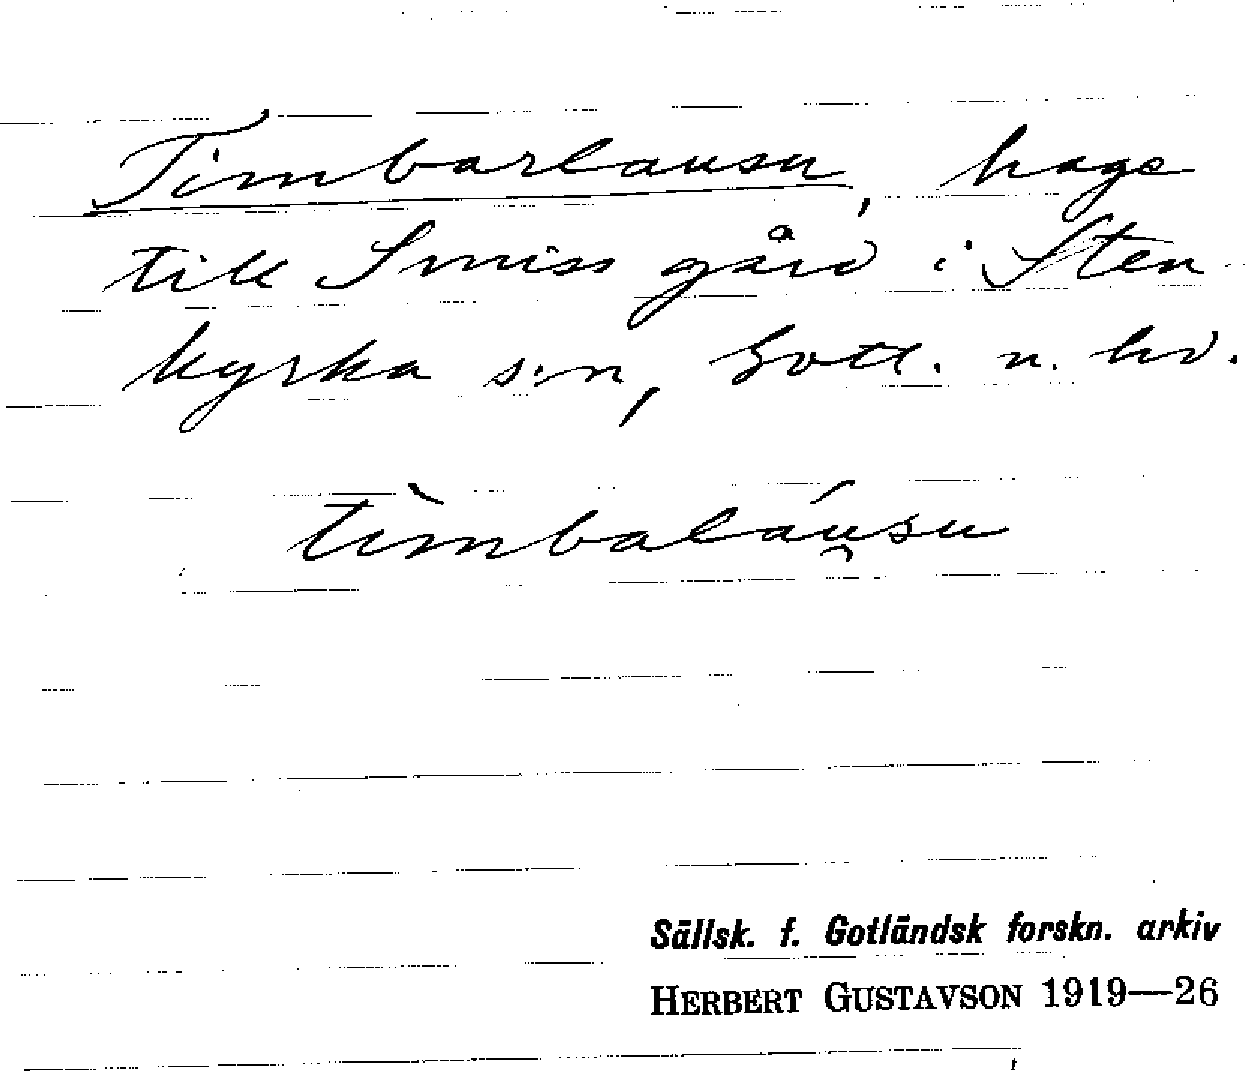 Timbarlausu, hage
till Smiss gård i Sten-
kyrka s:n, Gotl. n. hd.
tìmbaláu̯su
Sällsk. f. Gotländsk forskn. arkiv
HERBERT GUSTAVSON 1919—26